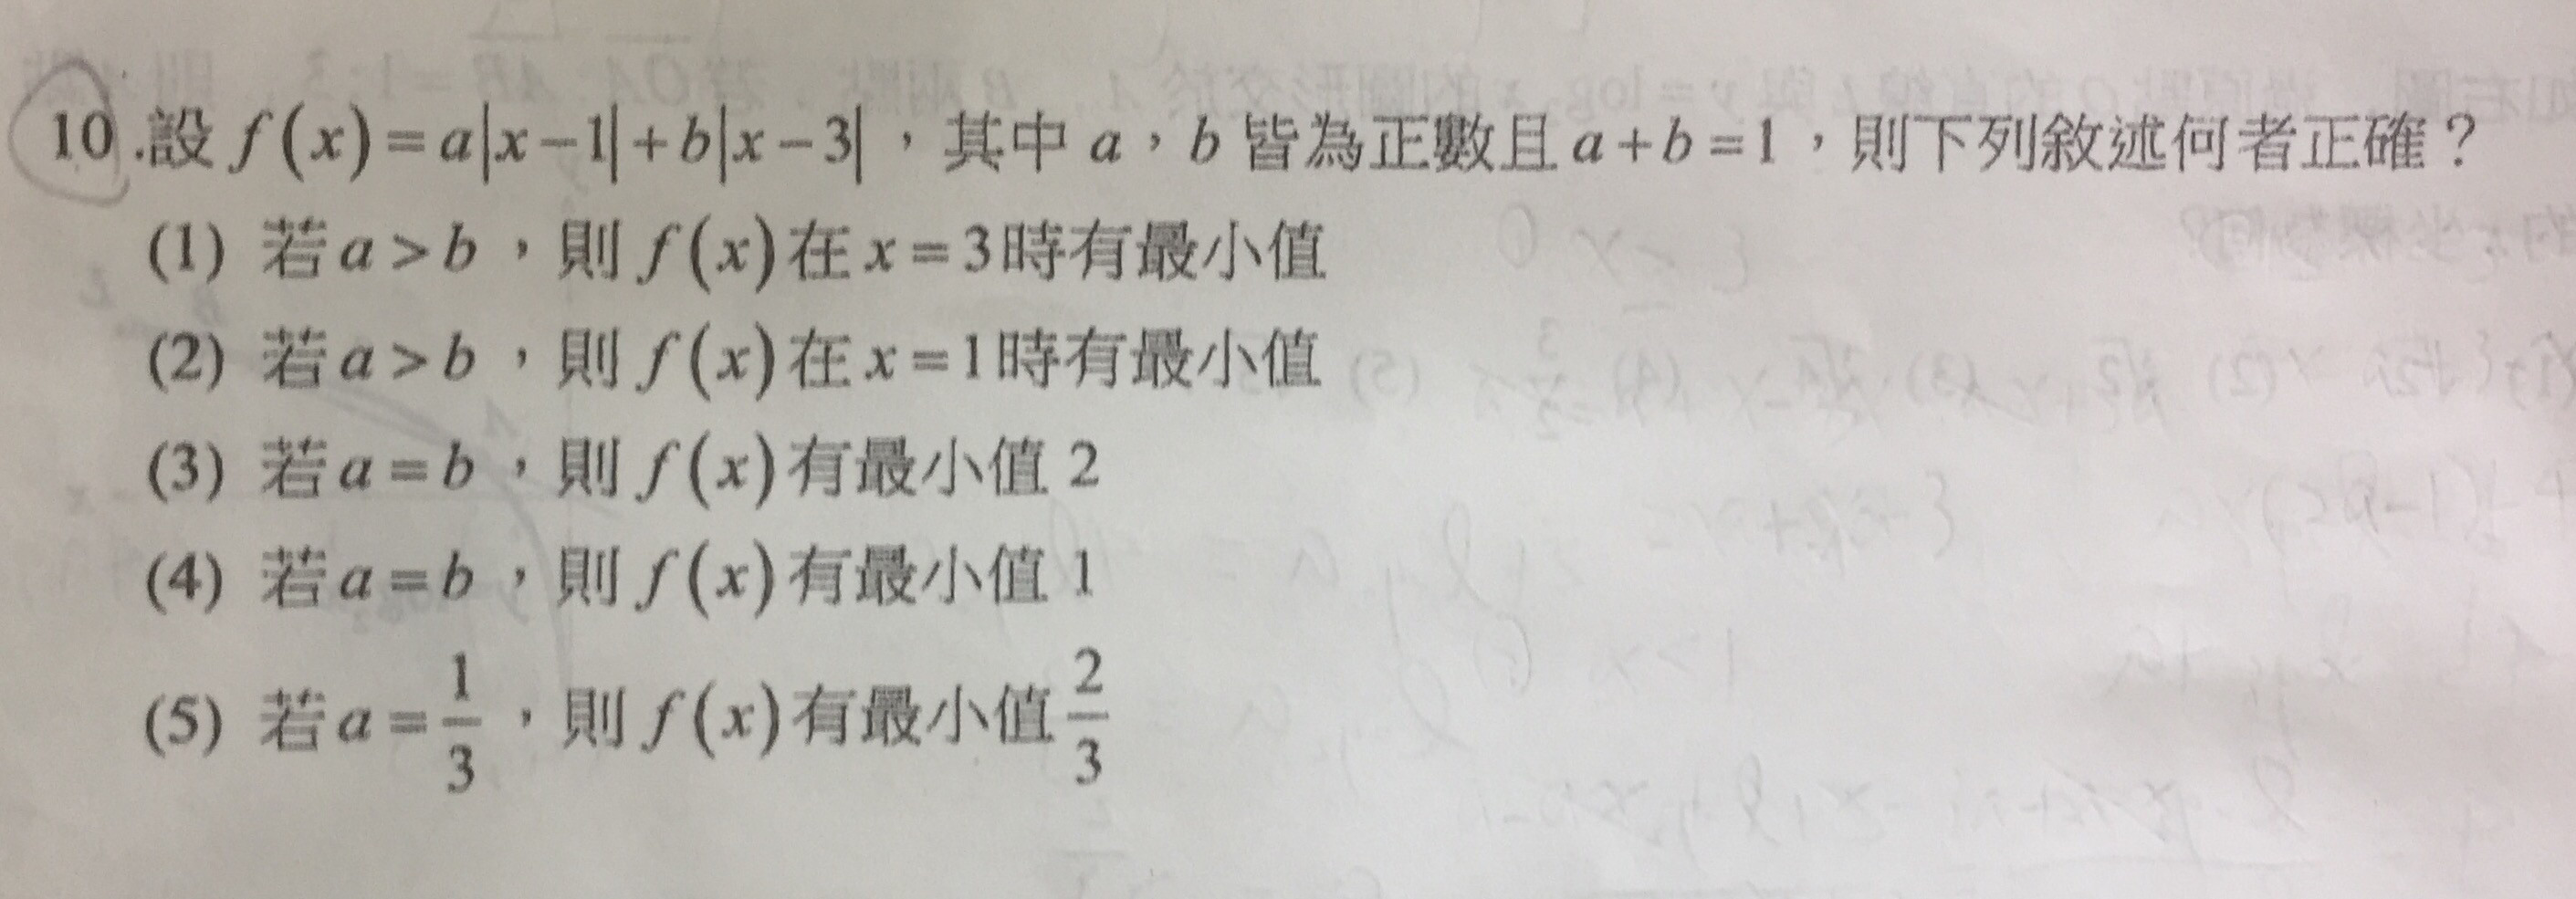 10.設 f(x)=a|x-1|+b|x-3|，其中 a，b 皆為正數且 a+b=1，則下列敘述何者正確？
(1) 若 a>b，則 f(x) 在 x=3 時有最小值
(2) 若 a>b，則 f(x) 在 x=1 時有最小值
(3) 若 a=b，則 f(x) 有最小值 2
(4) 若 a=b，則 f(x) 有最小值 1
(5) 若 a=1/3，則 f(x) 有最小值 2/3